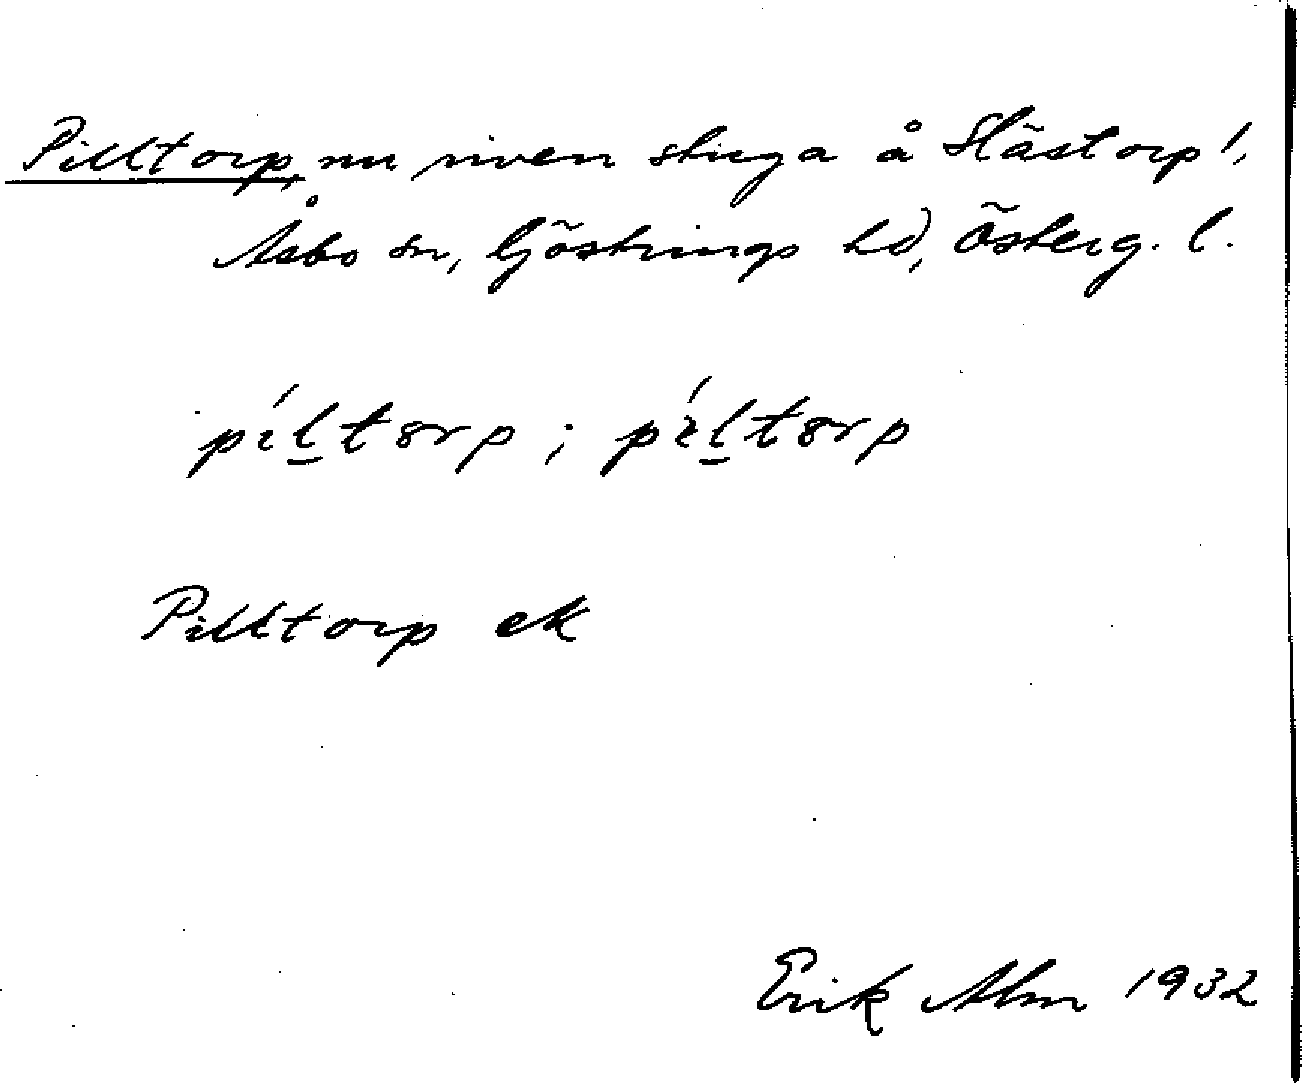 Pilltorp, nu riven stuga å Hästorp 1,
Åsbo sn, Göstrings hd, Österg. l.
píltorp ; píltorp
Pilltorp ek
Erik Alm 1932